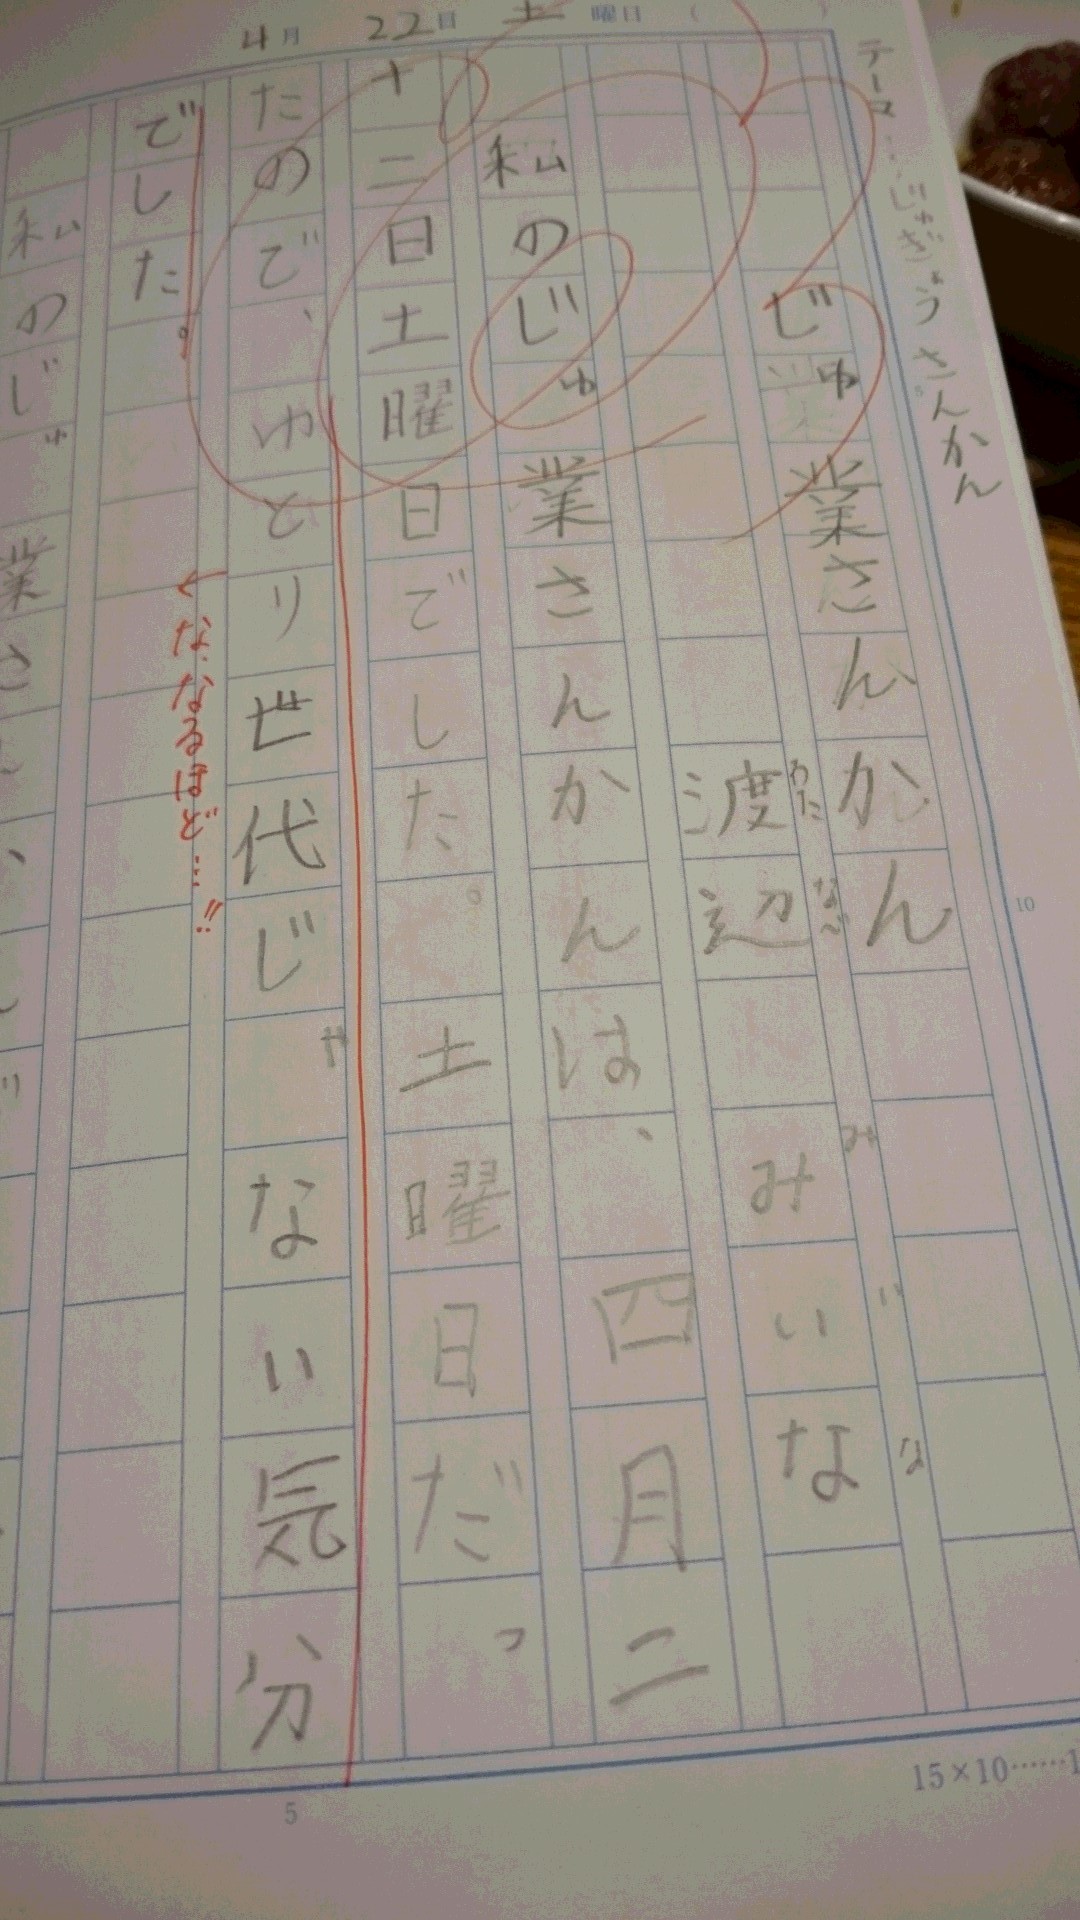 4月 22日 土曜日 ( )
テーマ…じゅぎょうさんかん
じゅ業さんかん
渡辺 みいな
わたなべ みいな
私のじゅ業さんかんは、四月二
十二日土曜日でした。土曜日だっ
たので、ゆとり世代じゃない気分
でした。
←な、なるほど…!!
私のじゅ業さ
10
5
15×10……1